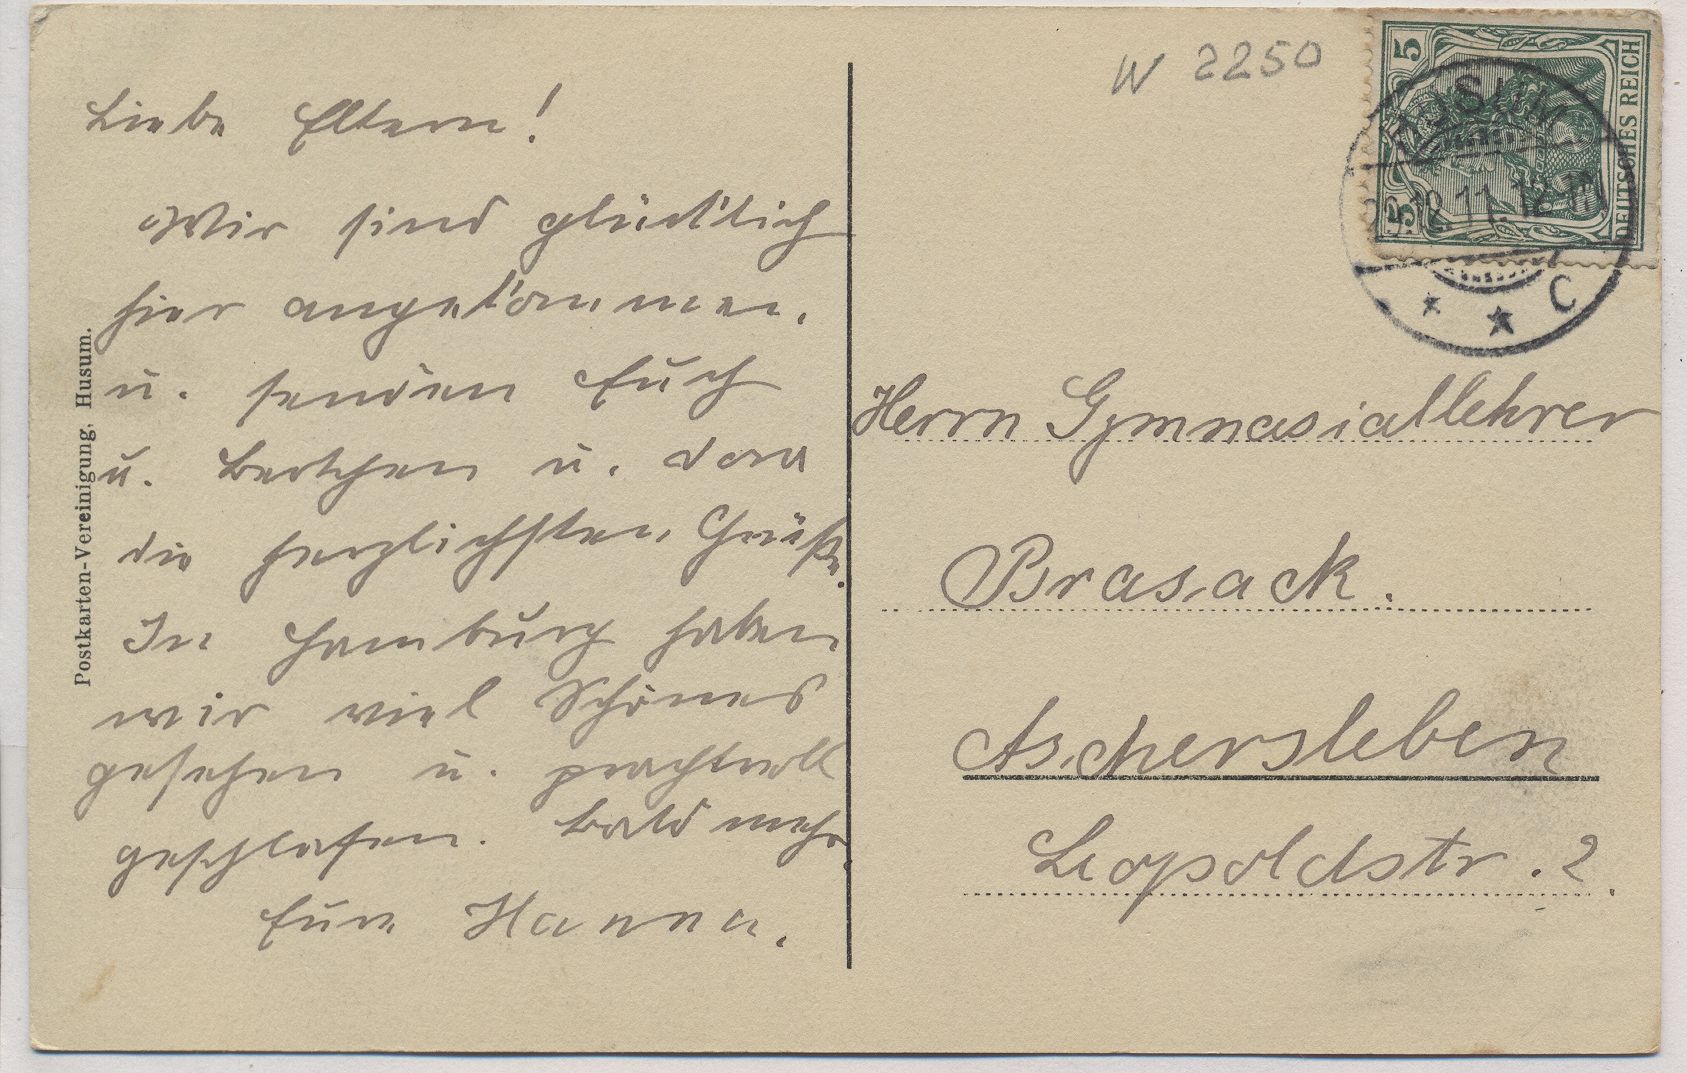 Liebe Eltern!
Wir sind glücklich
hier angekommen.
u. senden Euch
u. Bertchen u. Dora
die herzlichsten Grüße.
In Hamburg haben
wir viel Schönes
gesehen u. prachtvoll
geschlafen. Bald mehr.
Eure Hanna.
Postkarten-Vereinigung, Husum.
W 2250
5
5
DEUTSCHES REICH
HUSUM
12.11.12
* * C
Herrn Gymnasiallehrer
Brasack.
Aschersleben
Leopoldstr. 2.